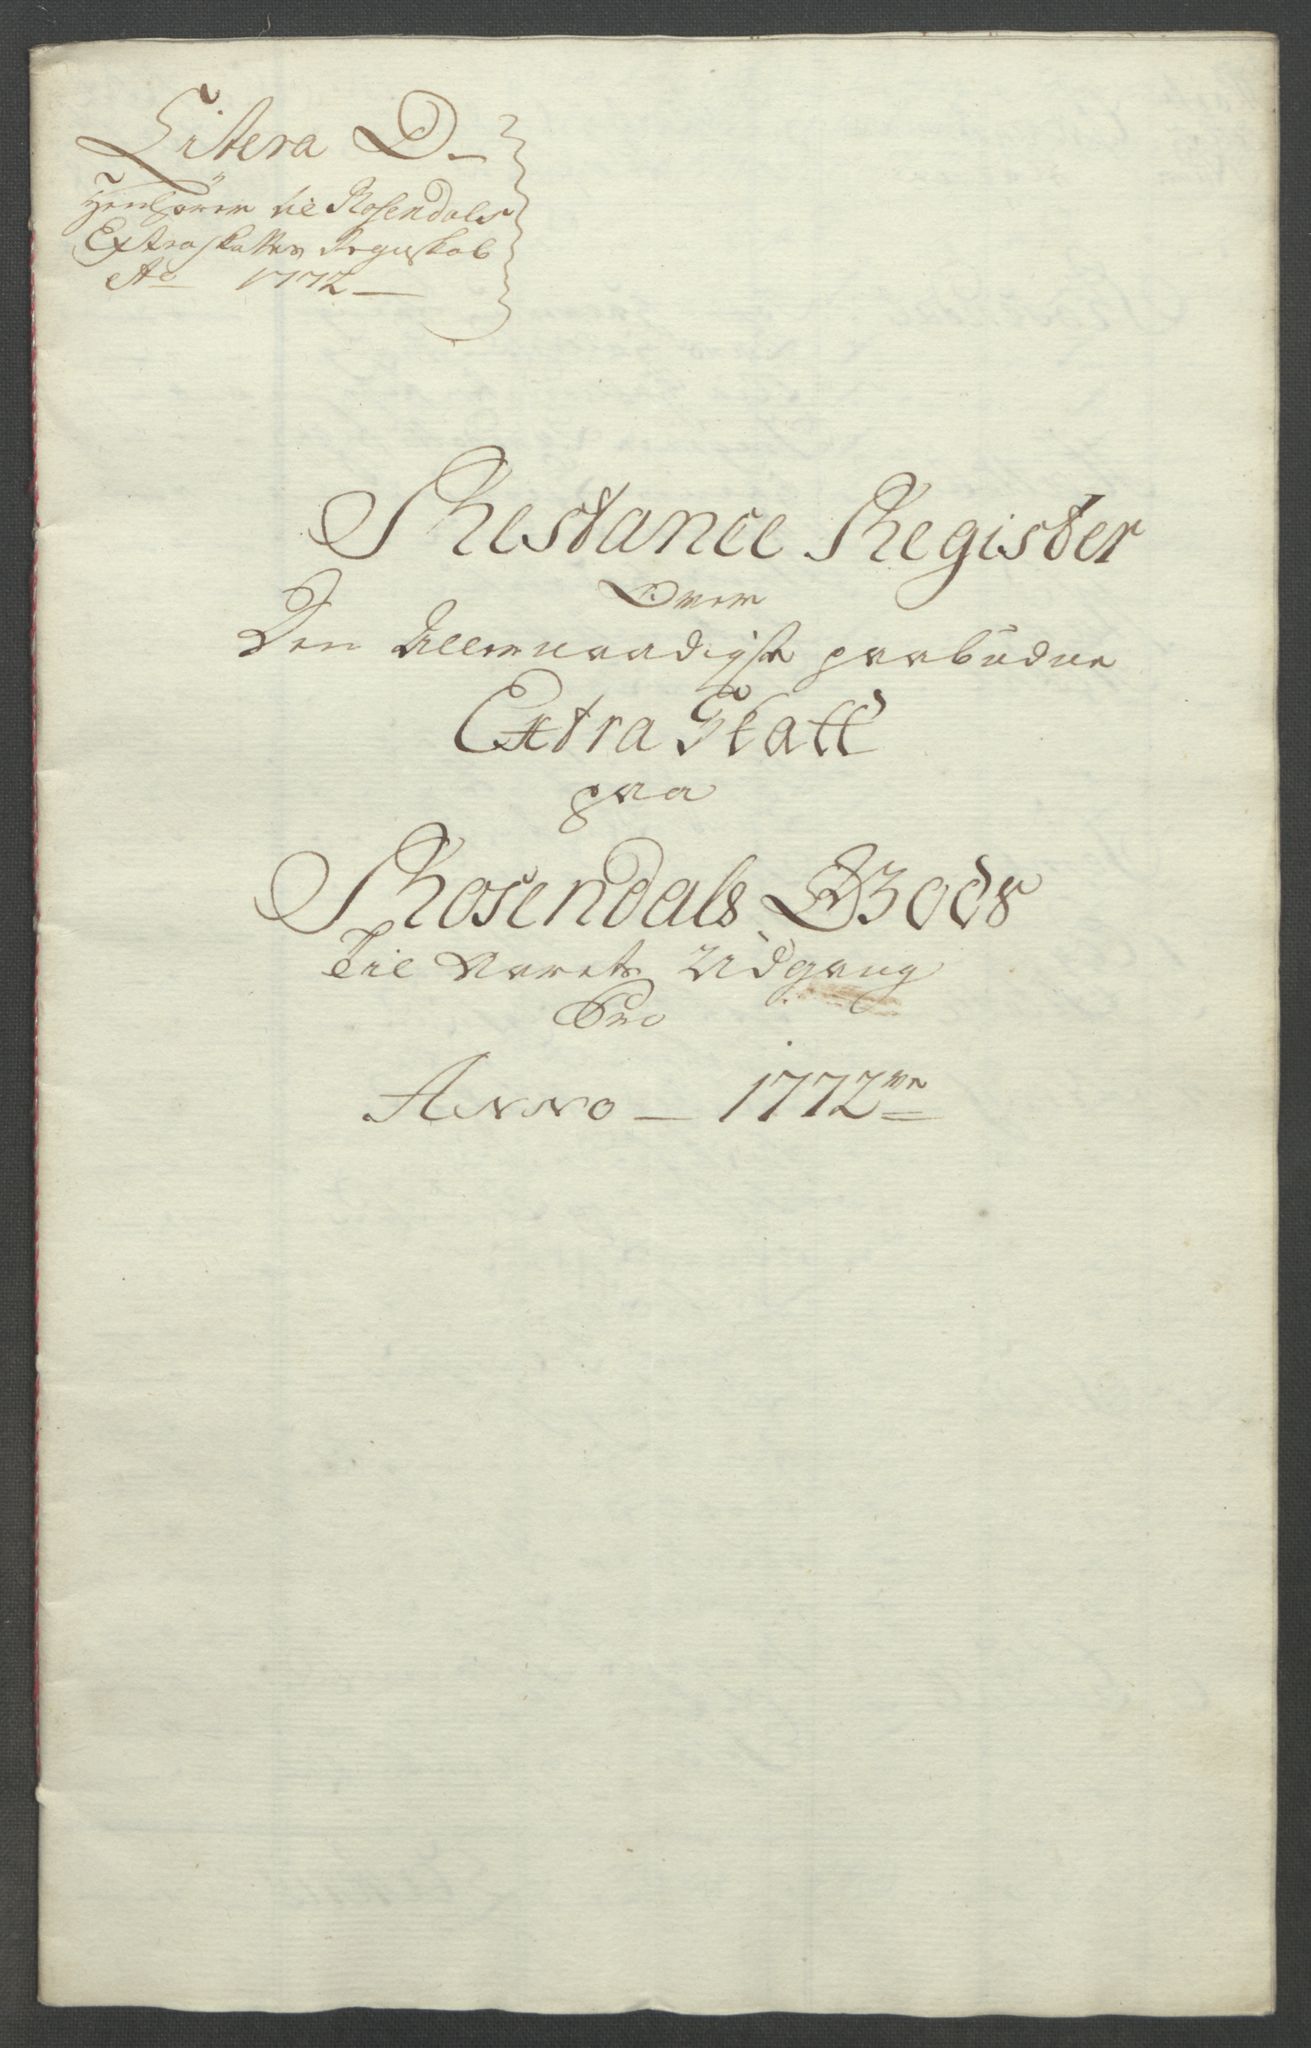 Litera D
Henhörer til Rosendals
Extraskattes Regnskab
Ao 1772
Restance Register
Over
Den Allernaadigste paabudne
Extra Skatt
paa
Rosendals Gods
Til Aarets Udgang
Pro
Anno 1772